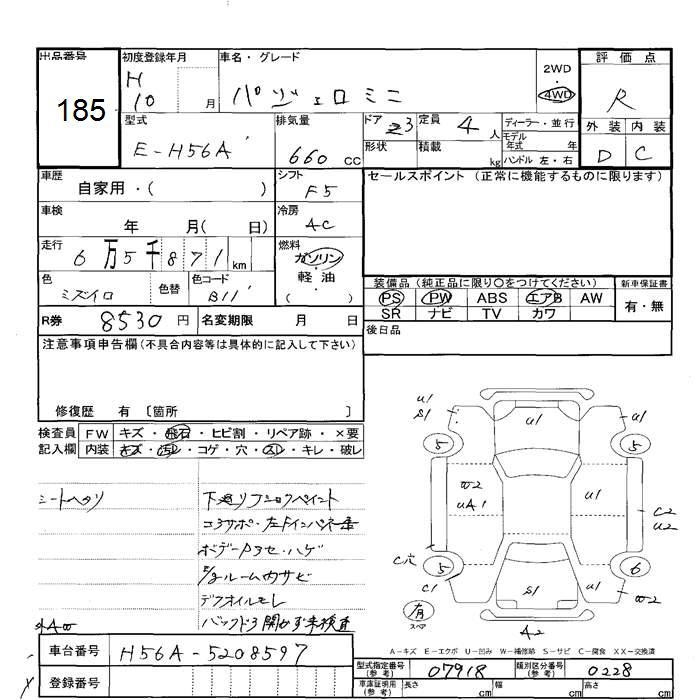 出品番号
185
初度登録年月
H
10 月
車名・グレード
パジェロミニ
2WD
・
4WD
評価点
R
外装 内装
D C
型式
E-H56A
排気量
660 cc
ドア 3
形状
定員 4 人
積載 kg
ディーラー・並行
モデル
年式 年
ハンドル 左・右
車歴
自家用・( )
シフト
F5
車検
年 月( 日)
冷房
AC
走行
6万5千871km
燃料
ガソリン
軽・油
( )
色
ミズイロ
色替
色コード
B11
R券 8530円
名変期限 月 日
セールスポイント(正常に機能するものに限ります)
装備品(純正品に限り〇をつけてください)
PS PW ABS エアB AW
SR ナビ TV カワ
新車保証書
有・無
後日品
注意事項申告欄(不具合内容等は具体的に記入して下さい)
修復歴 有〔箇所 〕
検査員
記入欄
FW キズ・飛石・ヒビ割・リペア跡・×要
内装 キズ・汚レ・コゲ・穴・スレ・キレ・破レ
シートヘタリ
下廻リ
コアサポ・左Fインパネ
ボデー ハゲ
ルーム内サビ
デフオイルモレ
バックドア開かず未検査
車台番号 H56A-5208597
登録番号
U1
S1
U1
U1
5
5
W2
UA1
U1
C2
U2
C穴
5
6
C1
S1
U1
W2
有
スペア
A2
A-キズ E-エクボ U-凹み W-補修跡 S-サビ C-腐食 XX-交換済
型式指定番号
(参考)
07918
類別区分番号
(参考)
0228
車庫証明用
(参考)
長さ cm
幅 cm
高さ cm